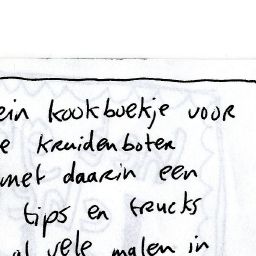 ein kookboekje voor
e kruidenboter
met daarin een
tips en trucks
al vele malen in